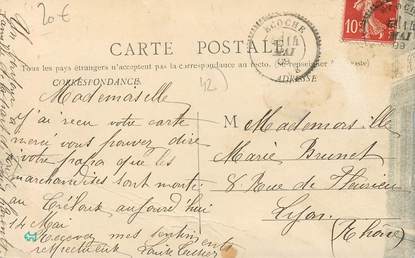 20€
CARTE POSTALE
Tous les pays étrangers n'acceptent pas la correspondance au recto. (Se renseigner
CORRESPONDANCE
42
ADRESSE
Mademoiselle
j'ai recu votre carte
merci vous pouvez dire
votre papa que les
marchandises sont monté
au Crétoux aujourd'hui
14 Mai
Recevez mes sentiments
respectueux
M Mademoiselle
Marie Brunet
8 Rue de Fleurieu
Lyon
(Rhône)
10
MAI
09